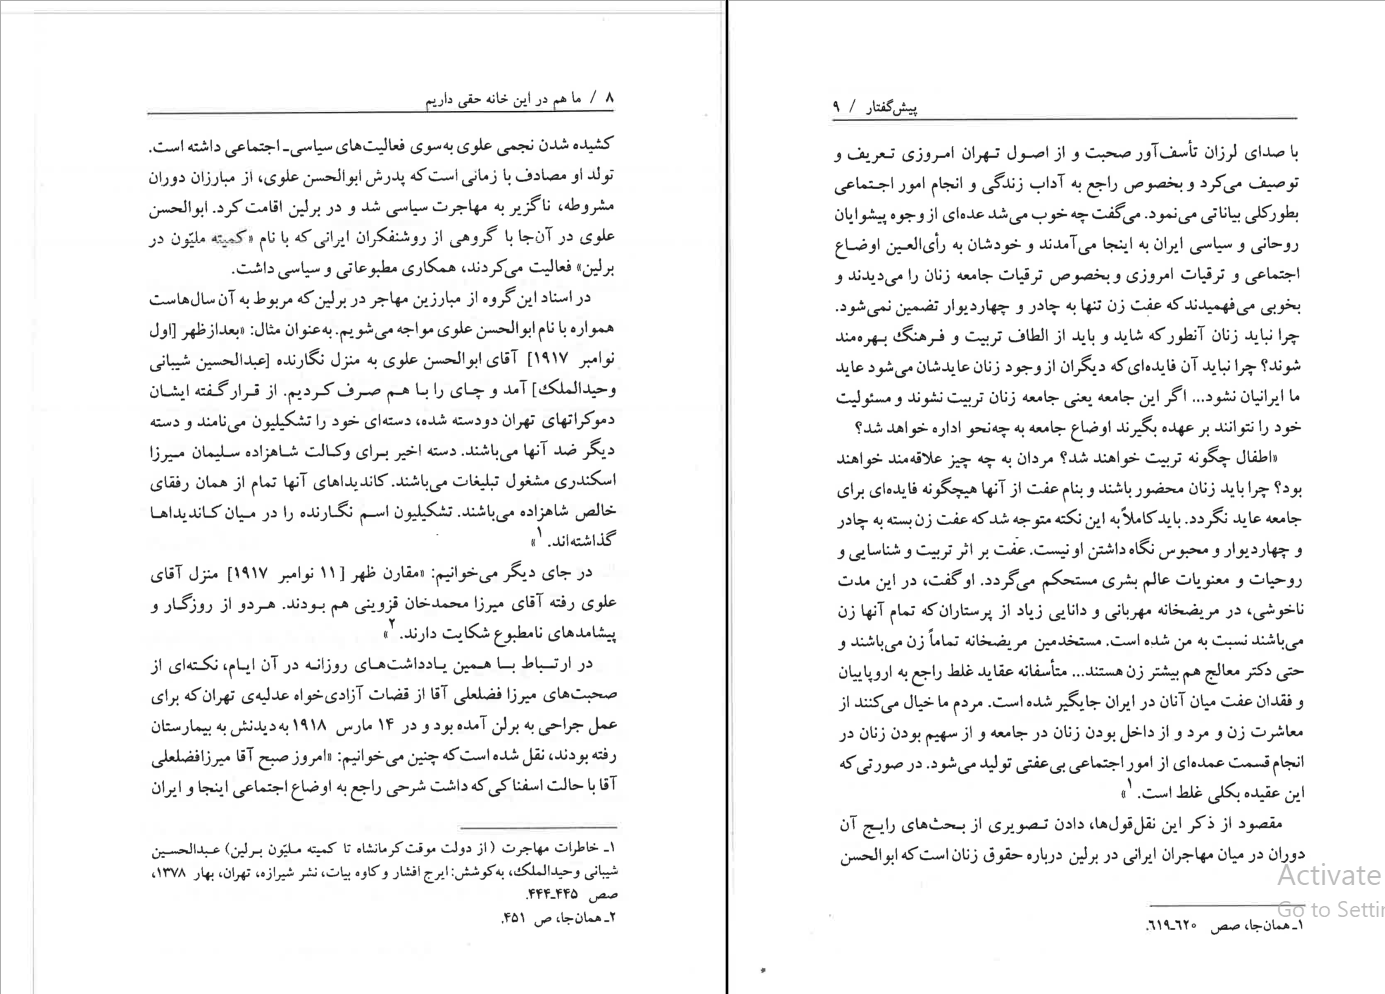 ۸ / ما هم در این خانه حقی داریم
کشیده شدن نجمی علوی به‌سوی فعالیت‌های سیاسی‌ـ اجتماعی داشته است.
تولد او مصادف با زمانی است که پدرش ابوالحسن علوی، از مبارزان دوران
مشروطه، ناگزیر به مهاجرت سیاسی شد و در برلین اقامت کرد. ابوالحسن
علوی در آن‌جا با گروهی از روشنفکران ایرانی که با نام «کمیته ملیّون در
برلین» فعالیت می‌کردند، همکاری مطبوعاتی و سیاسی داشت.
در اسناد این گروه از مبارزین مهاجر در برلین که مربوط به آن سال‌هاست
همواره با نام ابوالحسن علوی مواجه می‌شویم. به‌عنوان مثال: «بعدازظهر [اول
نوامبر ۱۹۱۷] آقای ابوالحسن علوی به منزل نگارنده [عبدالحسین شیبانی
وحیدالملک] آمد و چای را با هم صرف کردیم. از قرار گفته ایشان
دموکراتهای تهران دودسته شده، دسته‌ای خود را تشکیلیون می‌نامند و دسته
دیگر ضد آنها می‌باشند. دسته اخیر برای وکالت شاهزاده سلیمان میرزا
اسکندری مشغول تبلیغات می‌باشند. کاندیداهای آنها تمام از همان رفقای
خالص شاهزاده می‌باشند. تشکیلیون اسم نگارنده را در میان کاندیداها
گذاشته‌اند.۱»
در جای دیگر می‌خوانیم: «مقارن ظهر [۱۱ نوامبر ۱۹۱۷] منزل آقای
علوی رفته آقای میرزا محمدخان قزوینی هم بودند. هردو از روزگار و
پیشامدهای نامطبوع شکایت دارند.۲»
در ارتباط با همین یادداشت‌های روزانه در آن ایام، نکته‌ای از
صحبت‌های میرزا فضلعلی آقا از قضات آزادی‌خواه عدلیه‌ی تهران که برای
عمل جراحی به برلن آمده بود و در ۱۴ مارس ۱۹۱۸ به دیدنش به بیمارستان
رفته بودند، نقل شده است که چنین می‌خوانیم: «امروز صبح آقا میرزافضلعلی
آقا با حالت اسفناکی که داشت شرحی راجع به اوضاع اجتماعی اینجا و ایران
۱ـ خاطرات مهاجرت (از دولت موقت کرمانشاه تا کمیته ملیّون برلین) عبدالحسین
شیبانی وحیدالملک، به‌کوشش: ایرج افشار و کاوه بیات، نشر شیرازه، تهران، بهار ۱۳۷۸،
صص ۴۴۵ـ۴۴۴.
۲ـ همان‌جا، ص ۴۵۱.
پیش‌گفتار / ۹
با صدای لرزان تأسف‌آور صحبت و از اصول تهران امروزی تعریف و
توصیف می‌کرد و بخصوص راجع به آداب زندگی و انجام امور اجتماعی
بطورکلی بیاناتی می‌نمود. می‌گفت چه خوب می‌شد عده‌ای از وجوه پیشوایان
روحانی و سیاسی ایران به اینجا می‌آمدند و خودشان به رأی‌العین اوضاع
اجتماعی و ترقیات امروزی و بخصوص ترقیات جامعه زنان را می‌دیدند و
بخوبی می‌فهمیدند که عفت زن تنها به چادر و چهاردیوار تضمین نمی‌شود.
چرا نباید زنان آنطور که شاید و باید از الطاف تربیت و فرهنگ بهره‌مند
شوند؟ چرا نباید آن فایده‌ای که دیگران از وجود زنان عایدشان می‌شود عاید
ما ایرانیان نشود... اگر این جامعه یعنی جامعه زنان تربیت نشوند و مسئولیت
خود را نتوانند بر عهده بگیرند اوضاع جامعه به چه‌نحو اداره خواهد شد؟
«اطفال چگونه تربیت خواهند شد؟ مردان به چه چیز علاقه‌مند خواهند
بود؟ چرا باید زنان محضور باشند و بنام عفت از آنها هیچگونه فایده‌ای برای
جامعه عاید نگردد. باید کاملاً به این نکته متوجه شد که عفت زن بسته به چادر
و چهاردیوار و محبوس نگاه داشتن او نیست. عفت بر اثر تربیت و شناسایی و
روحیات و معنویات عالم بشری مستحکم می‌گردد. او گفت، در این مدت
ناخوشی، در مریضخانه مهربانی و دانایی زیاد از پرستاران که تمام آنها زن
می‌باشند نسبت به من شده است. مستخدمین مریضخانه تماماً زن می‌باشند و
حتی دکتر معالج هم بیشتر زن هستند... متأسفانه عقاید غلط راجع به اروپاییان
و فقدان عفت میان آنان در ایران جایگیر شده است. مردم ما خیال می‌کنند از
معاشرت زن و مرد و از داخل بودن زنان در جامعه و از سهیم بودن زنان در
انجام قسمت عمده‌ای از امور اجتماعی بی‌عفتی تولید می‌شود. در صورتی که
این عقیده بکلی غلط است.۱»
مقصود از ذکر این نقل‌قول‌ها، دادن تصویری از بحث‌های رایج آن
دوران در میان مهاجران ایرانی در برلین درباره حقوق زنان است که ابوالحسن
۱ـ همان‌جا، صص ۶۲۰ـ۶۱۹.
Activate
Go to Settin